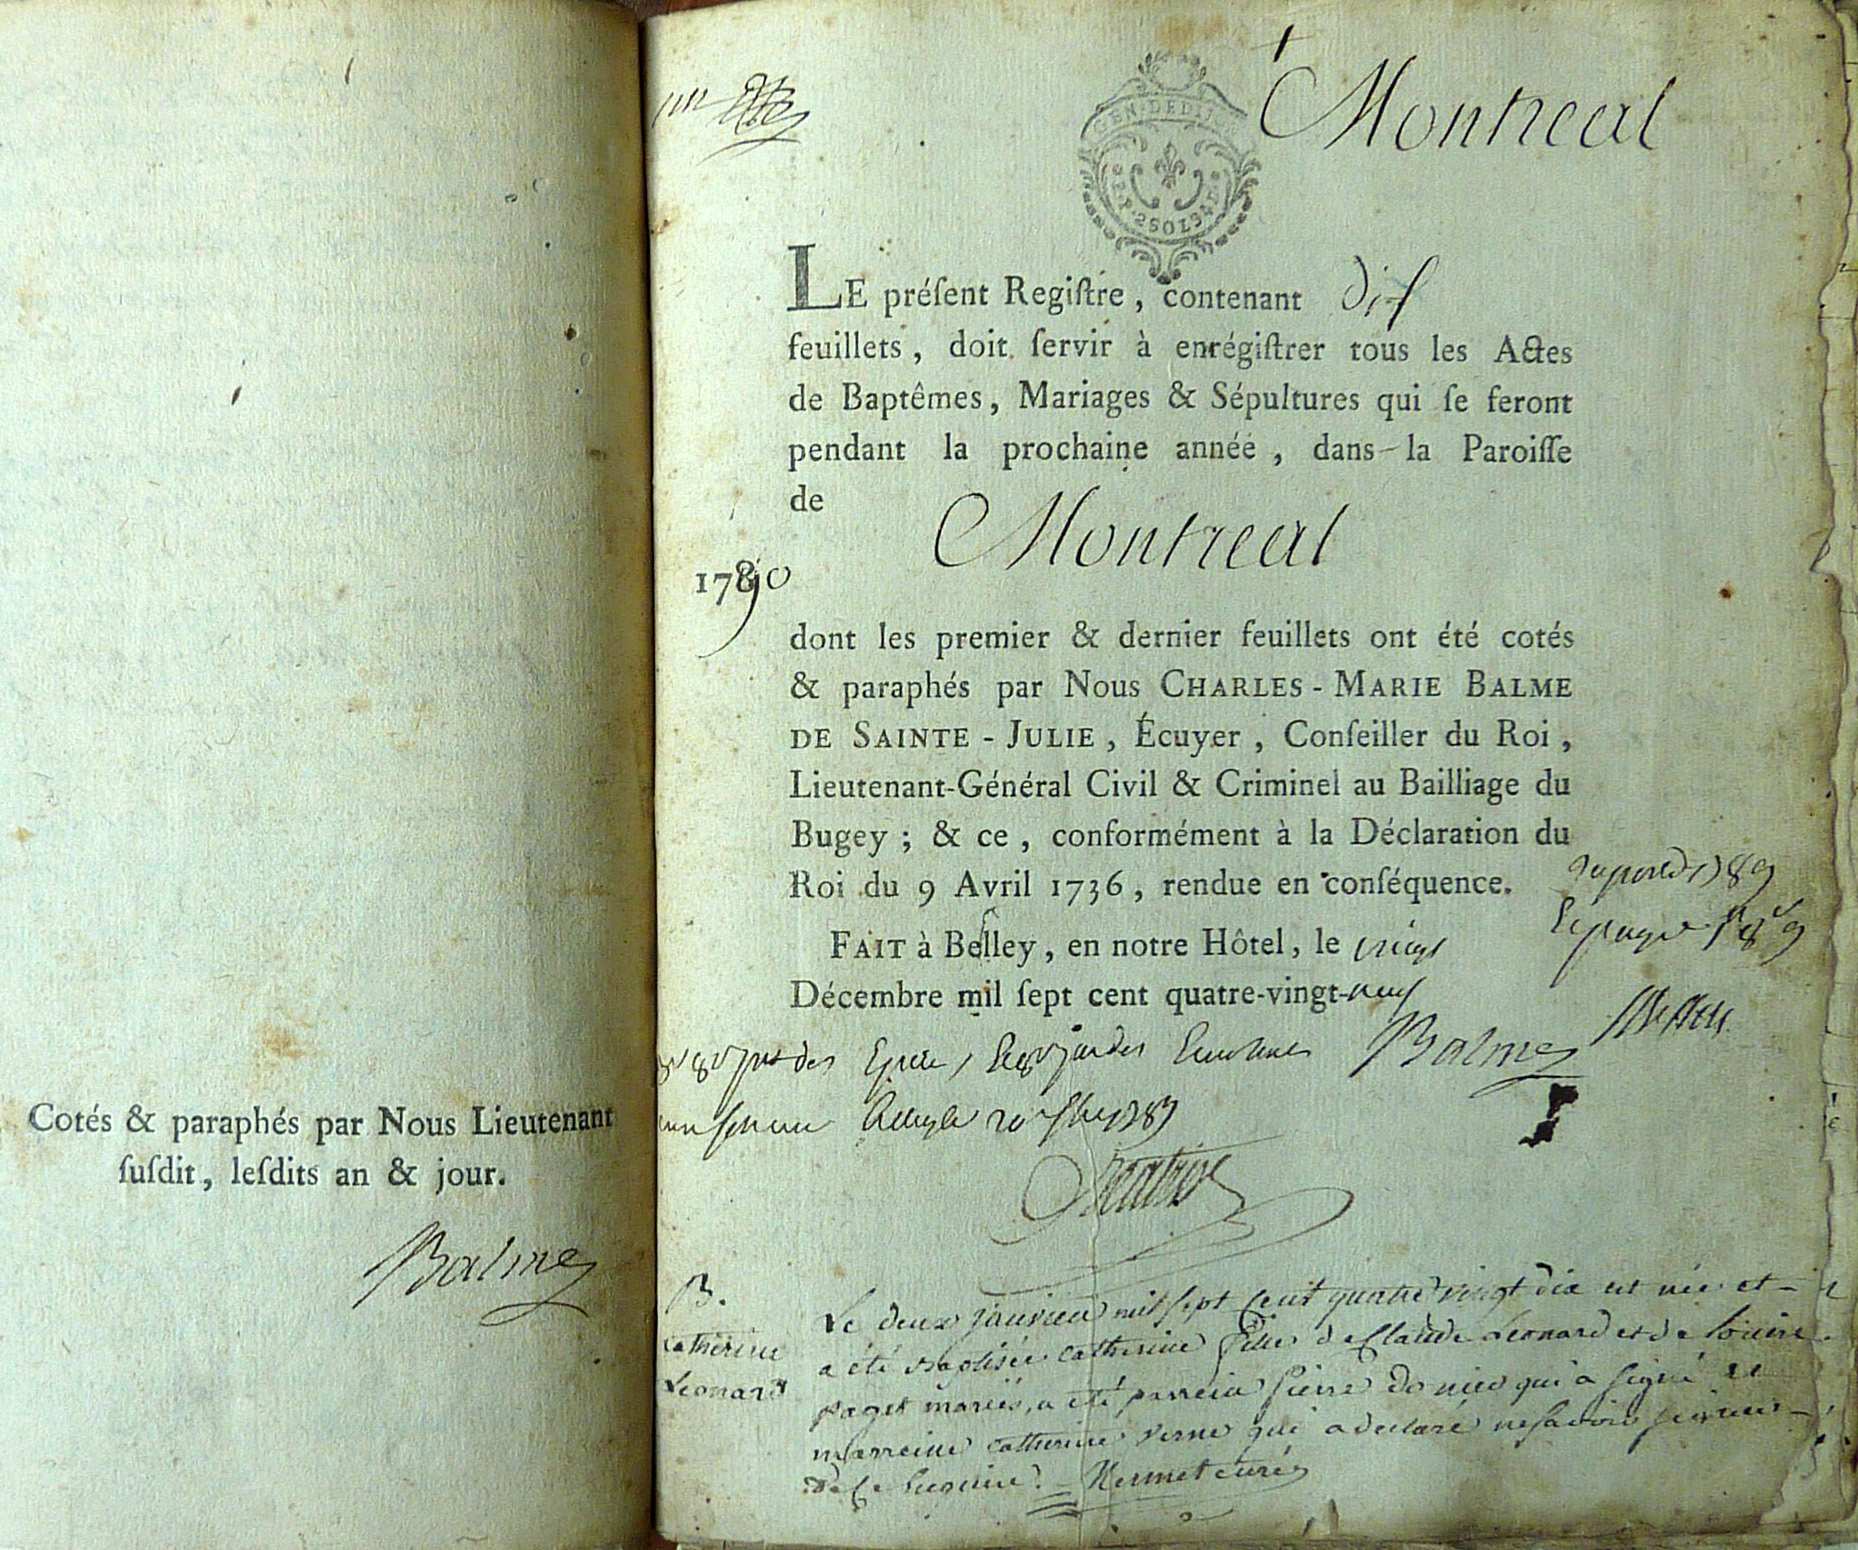 Cotés & paraphés par Nous Lieutenant
ſuſdit, leſdits an & jour.
Balme
Montreal
GEN. DE DIJON
2 SOLS 4 D
LE préſent Regiſtre, contenant dix
feuillets, doit ſervir à enrégiſtrer tous les Actes
de Baptêmes, Mariages & Sépultures qui ſe feront
pendant la prochaine année, dans la Paroiſſe
de
Montreal
1790
dont les premier & dernier feuillets ont été cotés
& paraphés par Nous CHARLES-MARIE BALME
DE SAINTE-JULIE, Écuyer, Conſeiller du Roi,
Lieutenant-Général Civil & Criminel au Bailliage du
Bugey; & ce, conformément à la Déclaration du
Roi du 9 Avril 1736, rendue en conſéquence.
1789
FAIT à Belley, en notre Hôtel, le vingt
Décembre mil ſept cent quatre-vingt-neuf
Balme
B.
Catherine
Leonard
Le deux janvier mil sept cent quatre vingt dix est née et
a été baptisée catherine fille de Claude Leonard et de
paget mariés, a été parrein pierre qui a signé et
marreine catherine verne qui a declaré ne savoir signer
de ce enquise. Hermet curé